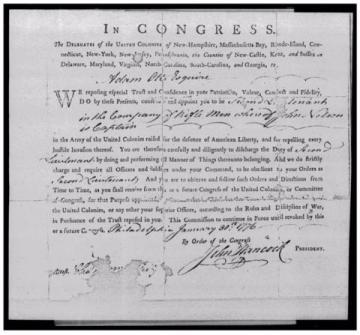 IN CONGRESS.
The DELEGATES of the UNITED COLONIES of New-Hampshire, Massachusetts Bay, Rhode-Island, Con-
necticut, New-York, New-Jersey, Pennsylvania, the Counties of New-Castle, Kent, and Sussex on
Delaware, Maryland, Virginia, North-Carolina, South-Carolina, and Georgia, to
Adam Ott Esquire
WE reposing especial Trust and Confidence in your Patriotism, Valour, Conduct and Fidelity,
DO by these Presents, constitute and appoint you to be Second Lieutenant
in the Company of Rifle Men whereof John Nelson
is Captain
in the Army of the United Colonies raised for the defence of American Liberty, and for repelling every
hostile Invasion thereof. You are therefore carefully and diligently to discharge the Duty of Second
Lieutenant by doing and performing all Manner of Things thereunto belonging. And we do strictly
charge and require all Officers and Soldiers under your Command, to be obedient to your Orders as
Second Lieutenant And you are to observe and follow such Orders and Directions from
Time to Time, as you shall receive from this or a future Congress of the United Colonies, or Committee
of Congress, for that Purpose appointed
the United Colonies, or any other your Superior Officer, according to the Rules and Discipline of War,
in Pursuance of the Trust reposed in you. This Commission to continue in Force until revoked by this
or a future Congress. Philadelphia January 30th 1776
By Order of the Congress
John Hancock
PRESIDENT.
Attest.